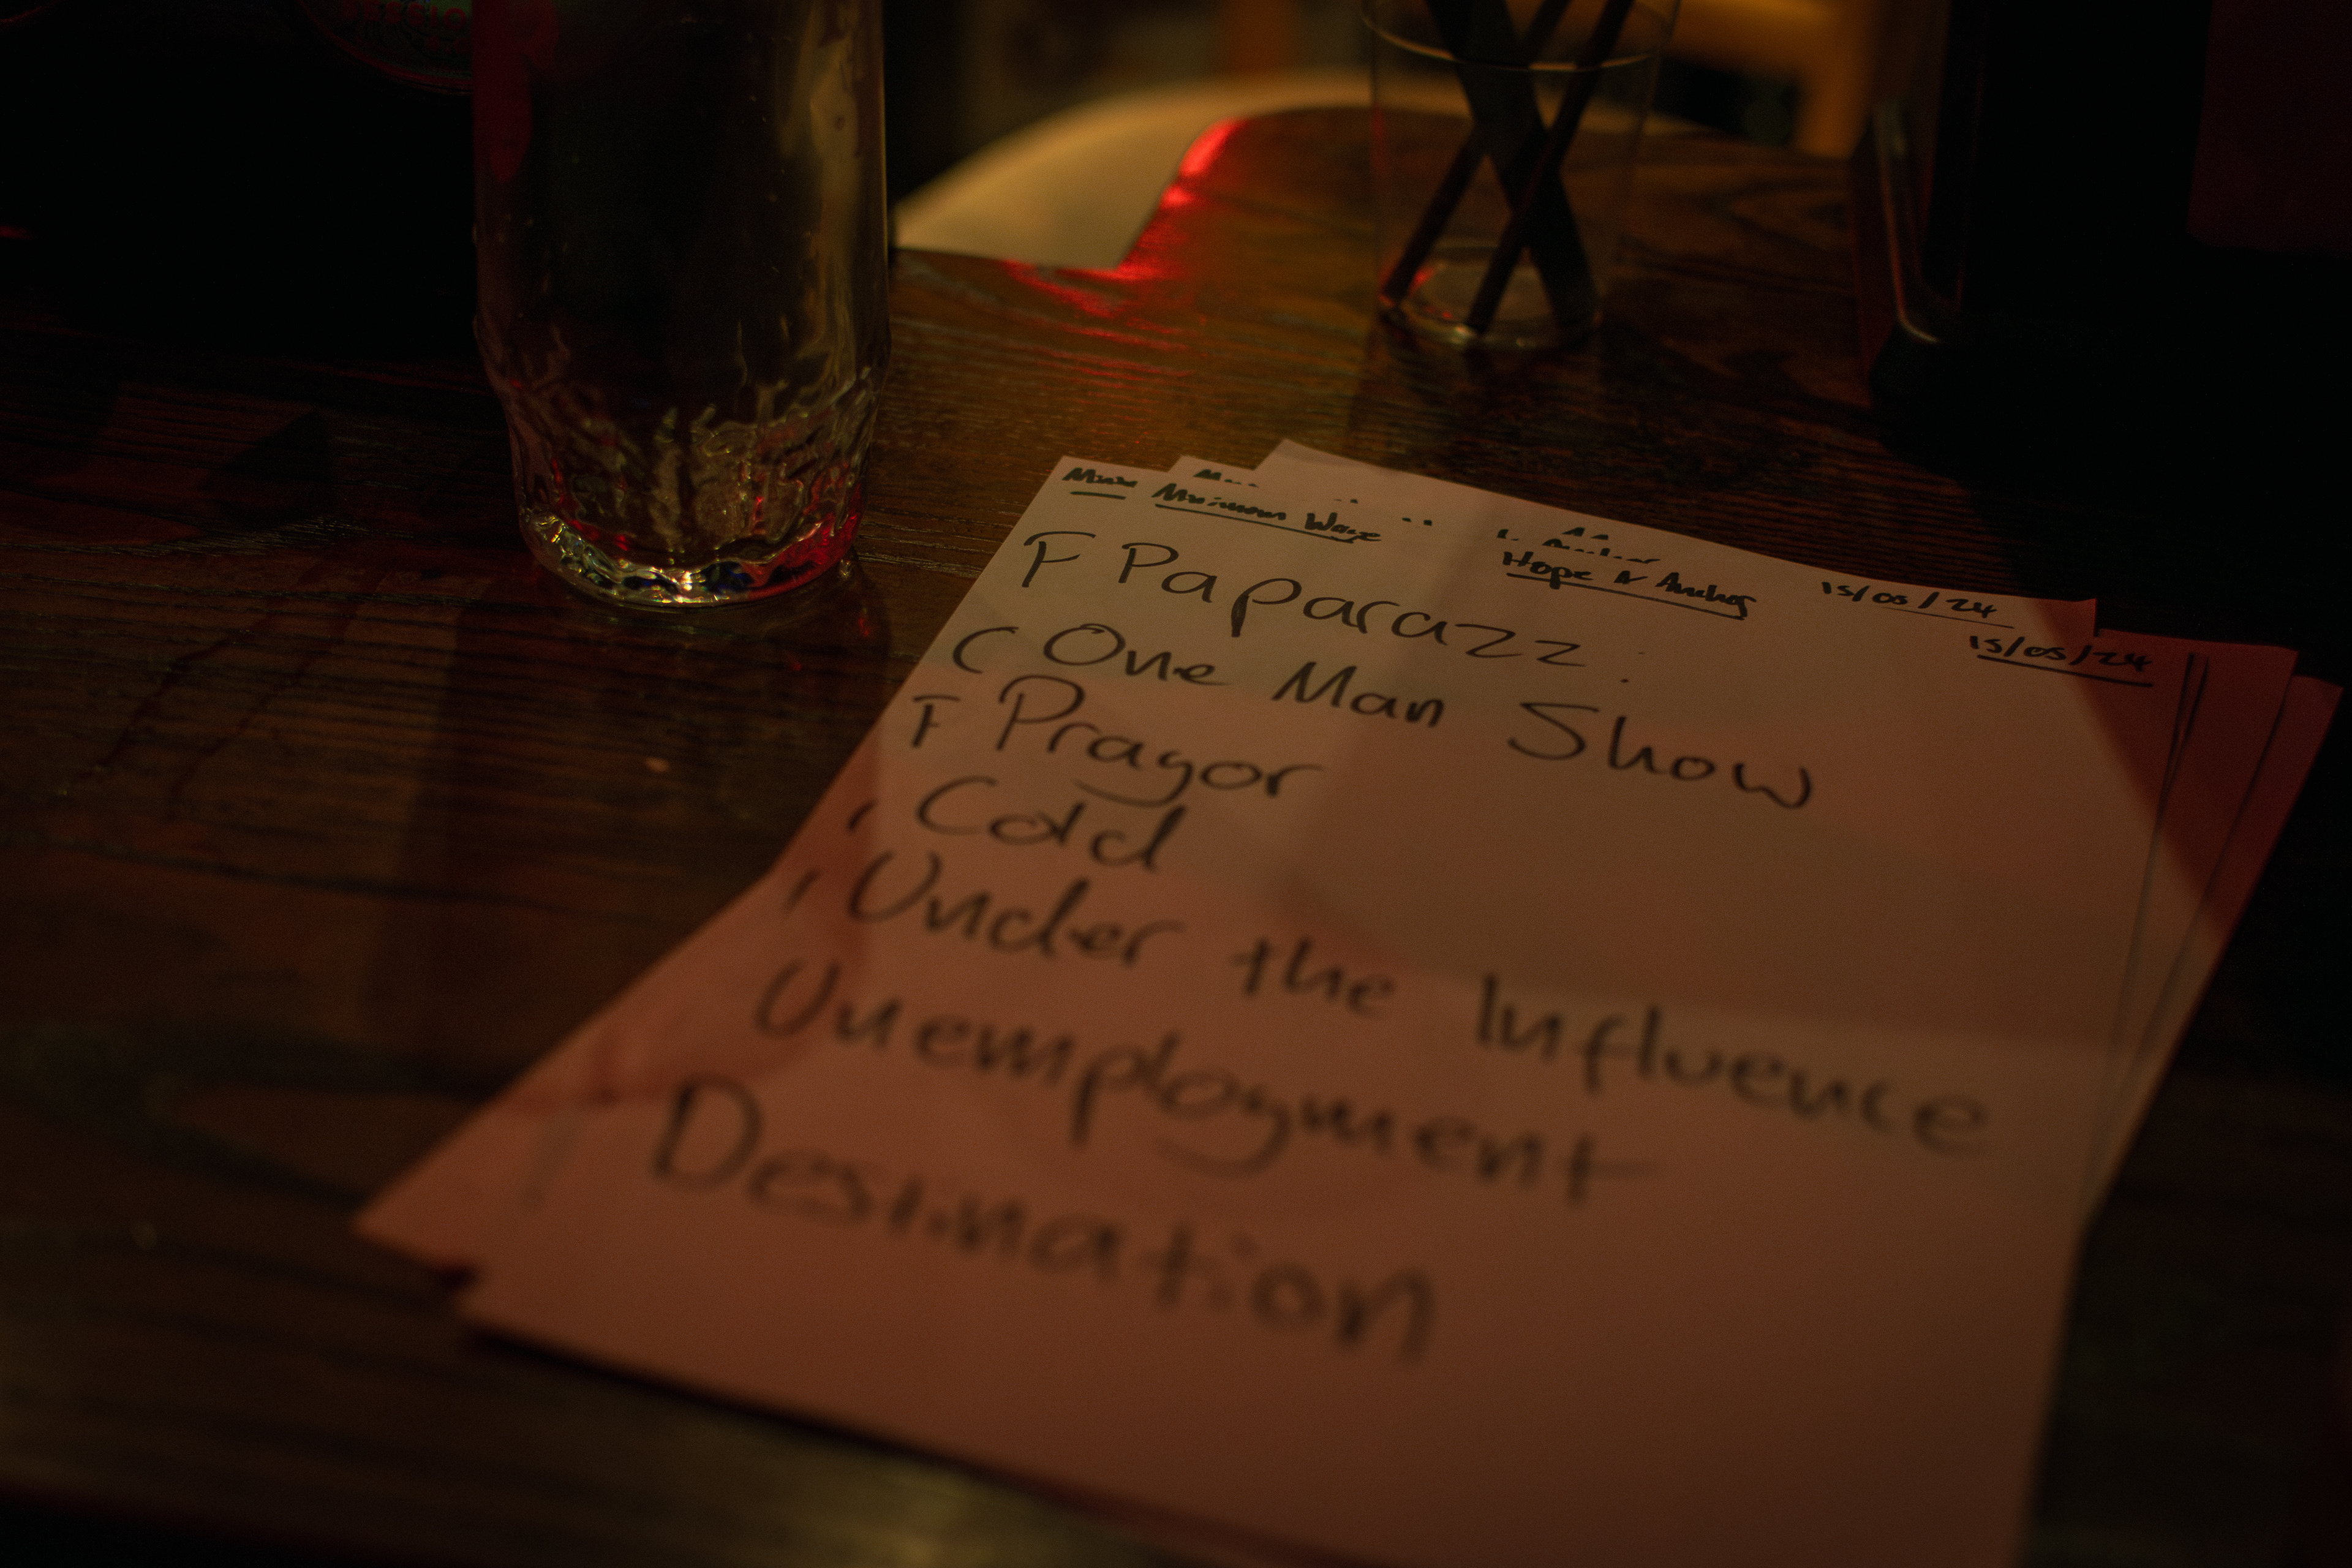 Minimum Wage Hope N Anchor 15/05/24
15/05/24
F Paparazzi
C One Man Show
F Prayor
Cold
Under the Influence
Unemployment
Desination